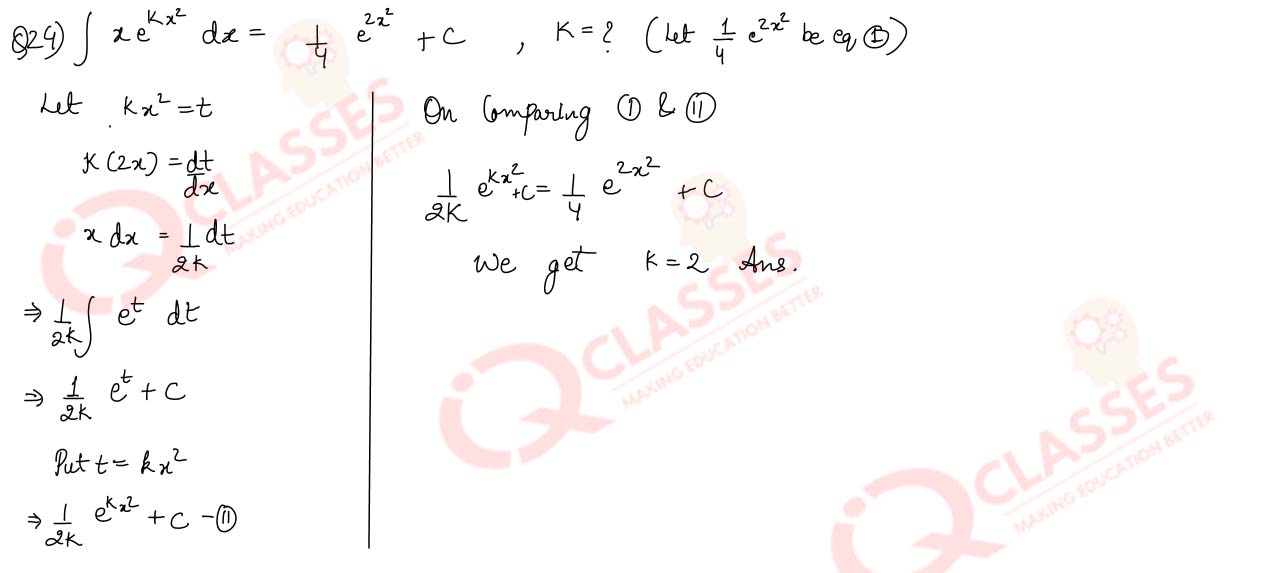 Q24) ∫ x e^{Kx²} dx = 1/4 e^{2x²} + C , K = ? (Let 1/4 e^{2x²} be eq Ⓘ)
Let Kx² = t
K(2x) = dt/dx
x dx = 1/2K dt
⇒ 1/2K ∫ e^t dt
⇒ 1/2K e^t + C
Put t = kx²
⇒ 1/2K e^{Kx²} + C – Ⓘⓘ
On Comparing Ⓘ & Ⓘⓘ
1/2K e^{Kx²} + C = 1/4 e^{2x²} + C
We get K = 2 Ans.
iQ CLASSES
MAKING EDUCATION BETTER
iQ CLASSES
MAKING EDUCATION BETTER
iQ CLASSES
MAKING EDUCATION BETTER